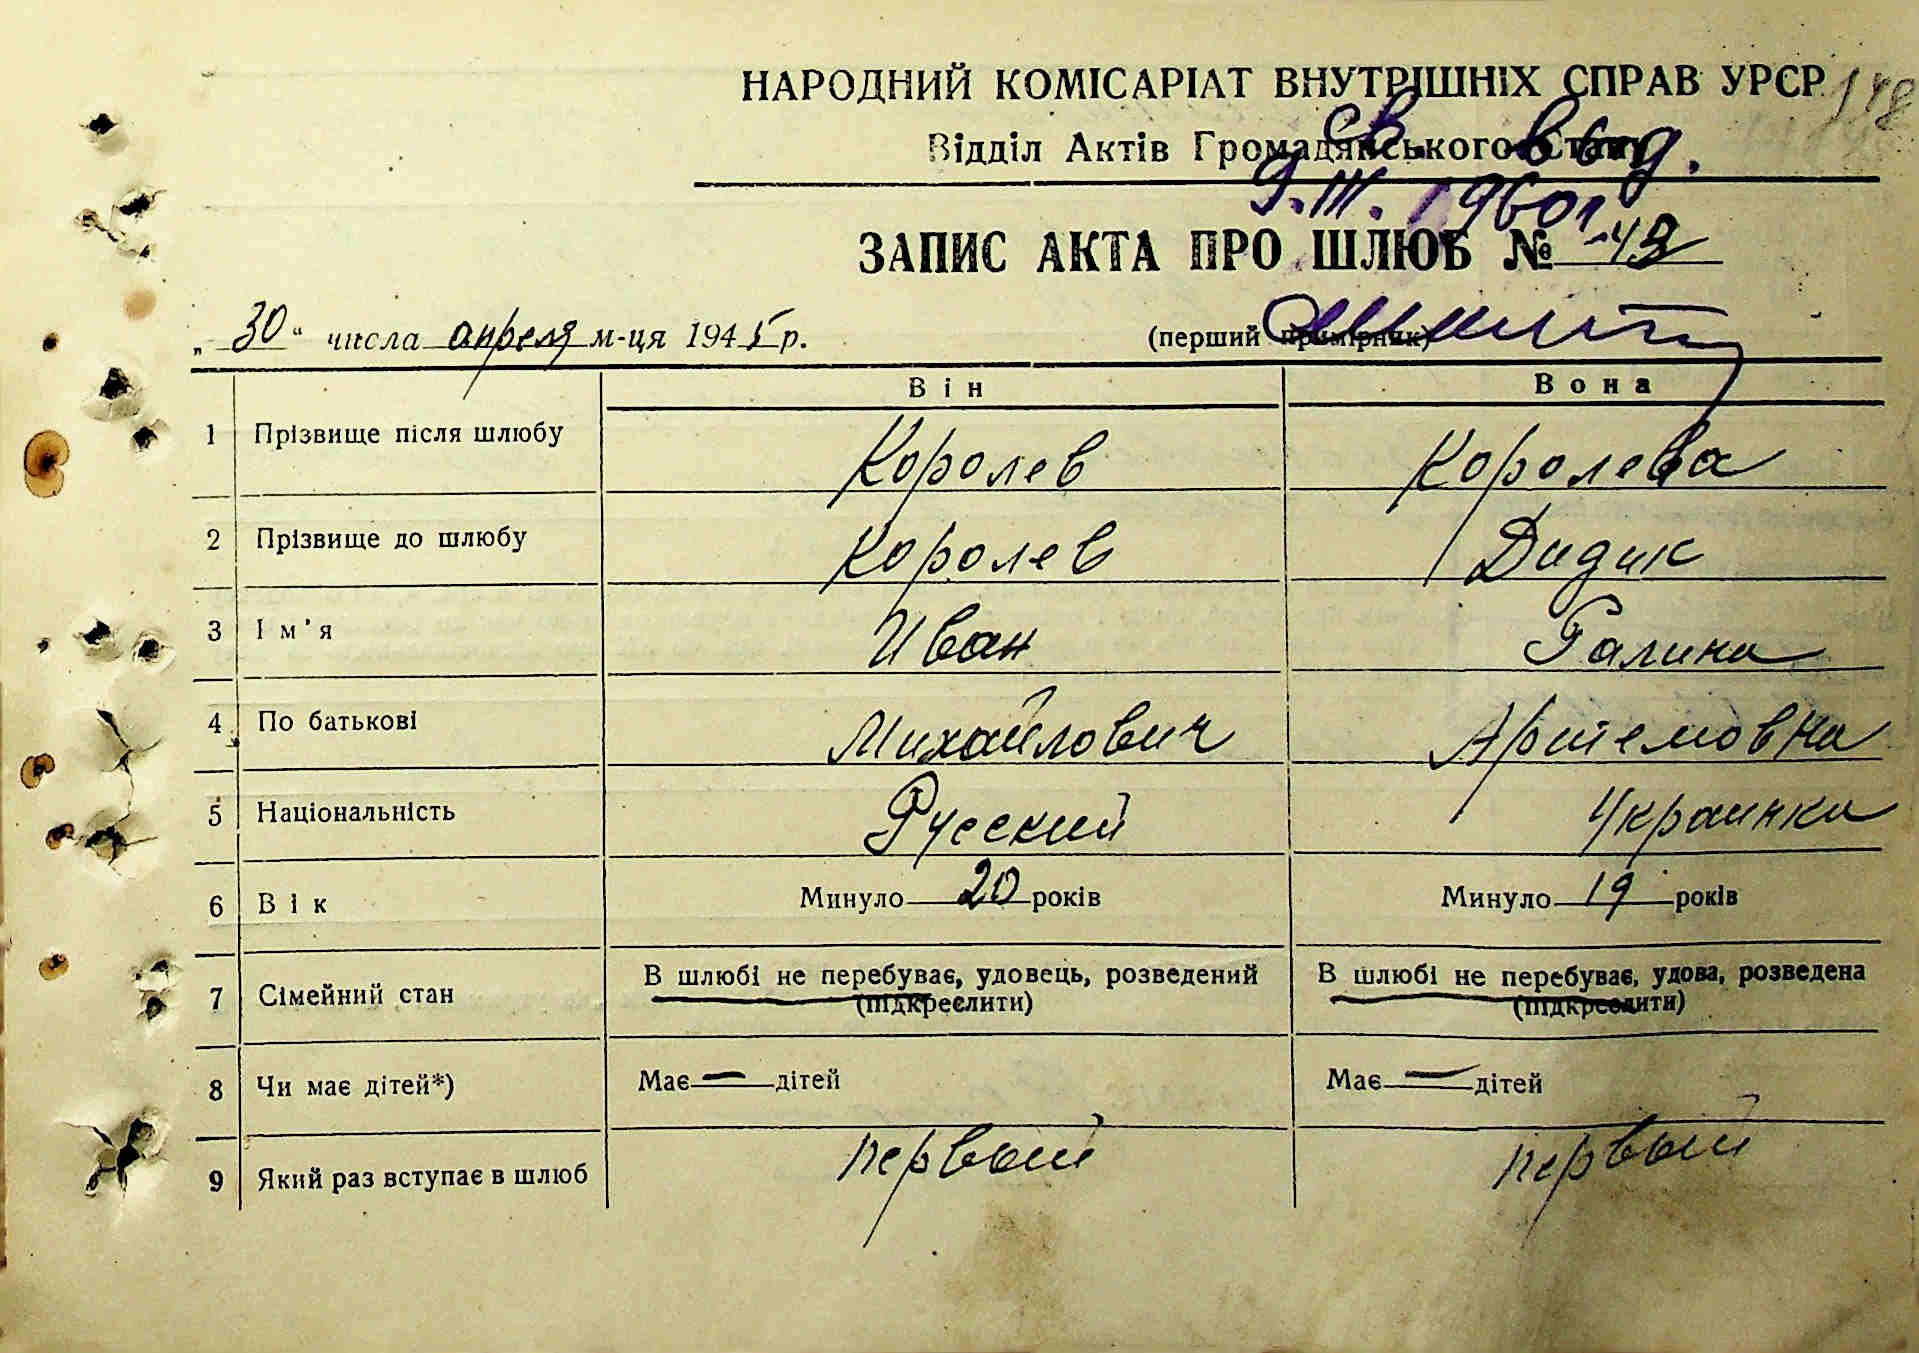 148
НАРОДНИЙ КОМІСАРІАТ ВНУТРІШНІХ СПРАВ УРСР
Відділ Актів Громадянського Стану
св. выд.
9.III.1960г
ЗАПИС АКТА ПРО ШЛЮБ № 43
„ 30 “ числа апреля м-ця 1945 р. (перший примірник)
Він Вона
1 Прізвище після шлюбу Королев Королева
2 Прізвище до шлюбу Королев Дидик
3 Ім'я Иван Галина
4 По батькові Михайлович Артемовна
5 Національність Русский Украинка
6 Вік Минуло 20 років Минуло 19 років
7 Сімейний стан В шлюбі не перебуває, удовець, розведений В шлюбі не перебуває, удова, розведена
(підкреслити) (підкреслити)
8 Чи має дітей*) Має — дітей Має — дітей
9 Який раз вступає в шлюб первый первый